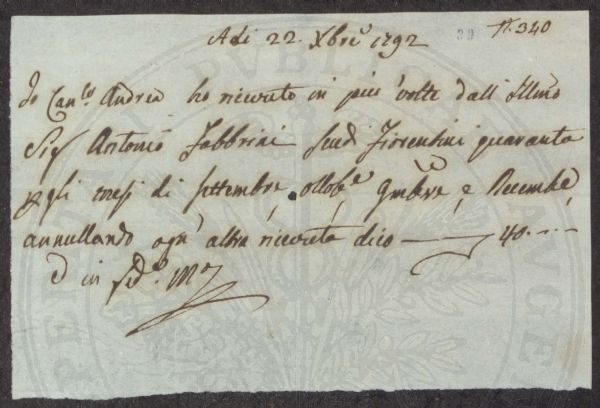 Adi 22. Xbre 1792
39 N. 340
Io Can.co Andrea ho ricevuto in più volte dall' Illmo
Sig Antonio Fabbrini Scudi Fiorentini quaranta
gli mesi di settembre, ottobe, 9mbre, e Decembe,
annullando ogn' altra ricevuta dico — 40
in fede